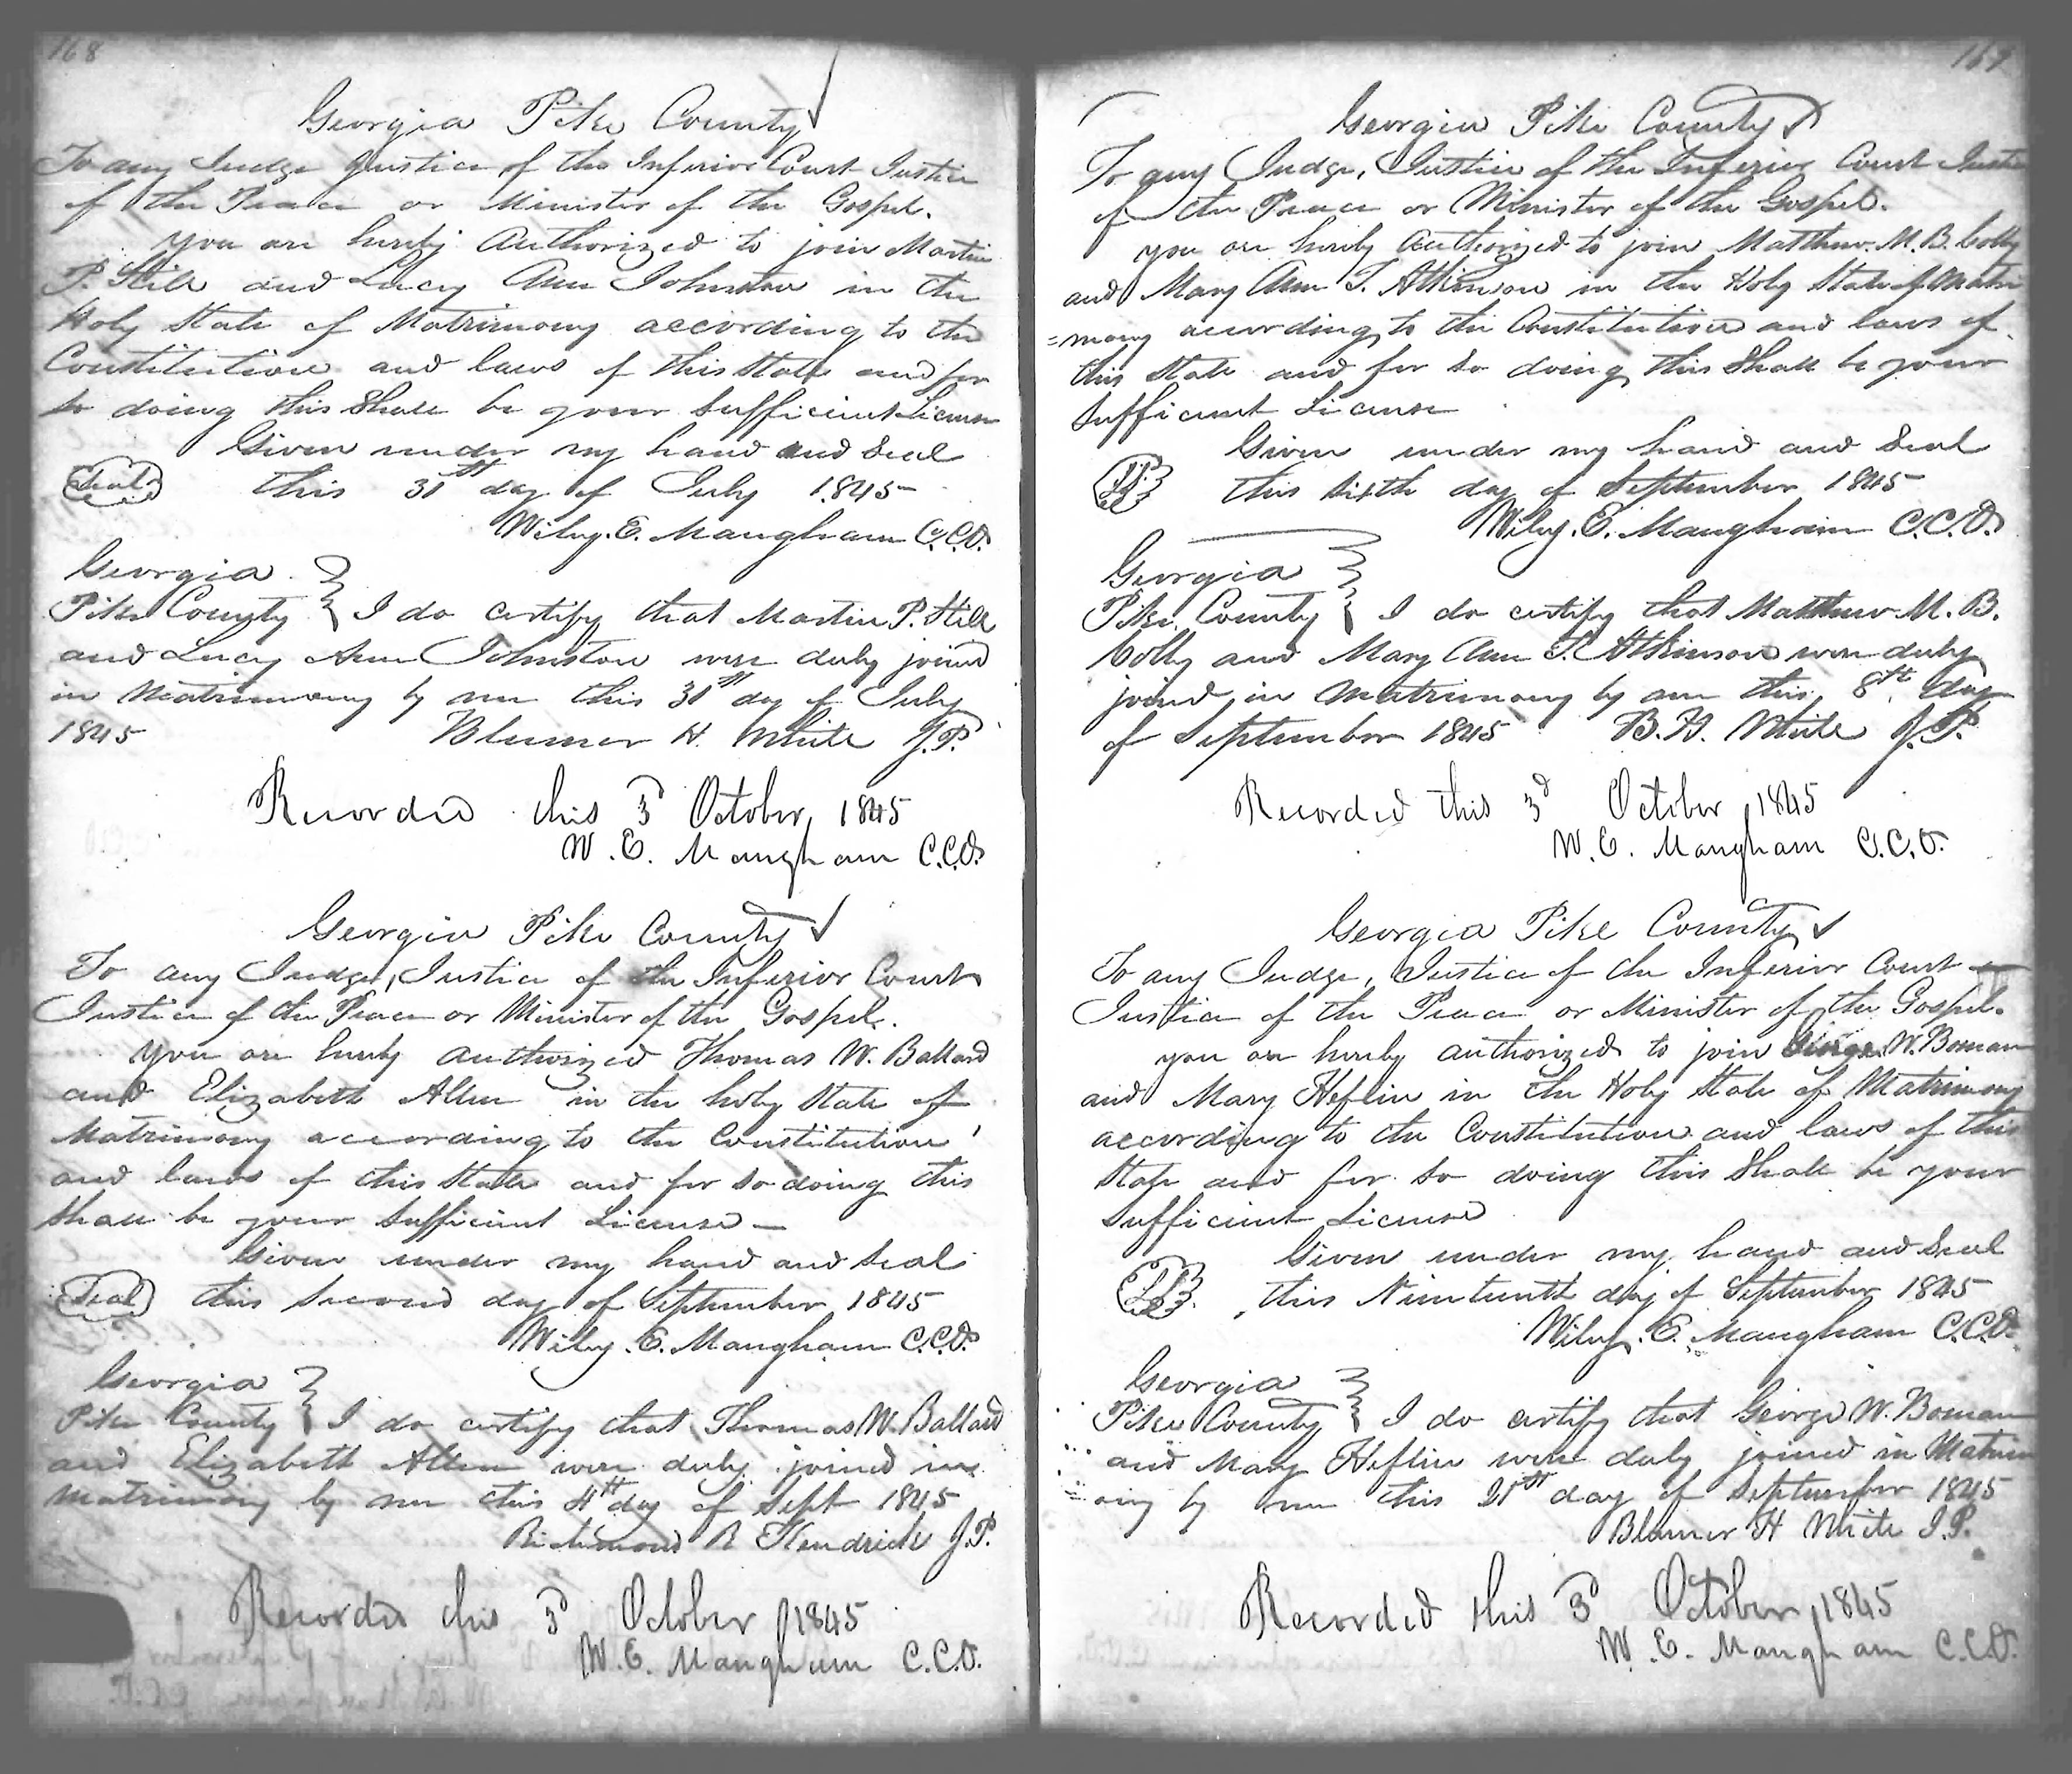 168
Georgia Pike County
To any Judge Justice of the Inferior Court Justice
of the Peace or Minister of the Gospel.
You are hereby Authorized to join Martin
P. Still and Lucy Ann Johnston in the
Holy State of Matrimony according to the
Constitution and laws of this State and for
so doing this Shall be your Sufficient License
Given under my hand and Seal
Seal this 31st day of July 1845
Wiley. E. Mangham C.C.O.
Georgia
Pike County I do certify that Martin P. Still
and Lucy Ann Johnston were duly joined
in Matrimony by me this 31st day of July
1845 Blumer H. White J.P.
Recorded this 3d October, 1845
W. E. Mangham C.C.O.
Georgia Pike County
To any Judge, Justice of the Inferior Court
Justice of the Peace or Minister of the Gospel.
You are hereby authorized Thomas W. Ballard
and Elizabeth Allen in the holy State of
Matrimony according to the Constitution
and laws of this State and for so doing this
Shall be your Sufficient License —
Given under my hand and Seal
Seal this second day of September 1845
Wiley. E. Mangham C.C.O.
Georgia
Pike County I do certify that Thomas W. Ballard
and Elizabeth Allen were duly joined in
matrimony by me this 4th day of Sept 1845
Richmond R Kendrick J.P.
Recorded this 3d October, 1845
W. E. Mangham C.C.O.
169
Georgia Pike County
To any Judge, Justice of the Inferior Court Justice
of the Peace or Minister of the Gospel.
you are hereby Authorized to join Matthew. M. B. Colly
and Mary Ann T. Atkinson in the Holy State of Matri
=mony according to the Constitution and laws of
this State and for so doing this Shall be your
Sufficient License
Given under my hand and Seal
this sixth day of September 1845
Wiley. E. Mangham C.C.O.
Georgia
Pike County I do certify that Matthew M. B.
Colly and Mary Ann T. Atkinson were duly
joined in Matrimony by me this 8th day
of September 1845 B. H. White J.P.
Recorded this 3d October, 1845
W. E. Mangham C.C.O.
Georgia Pike County
To any Judge, Justice of the Inferior Court
Justice of the Peace or Minister of the Gospel.
you are hereby authorized to join George. W. Boman
and Mary Heflin in the Holy State of Matrimony
according to the Constitution and laws of this
State and for so doing this Shall be your
Sufficient License
Given under my hand and Seal
this Nineteenth day of September 1845
Wiley. E. Mangham C.C.O.
Georgia
Pike County I do certify that George W. Boman
and Mary Heflin were duly joined in Matrim
=ony by me this 21st day of September 1845
Blumer H White J.P.
Recorded this 3d October, 1845
W. E. Mangham C.C.O.